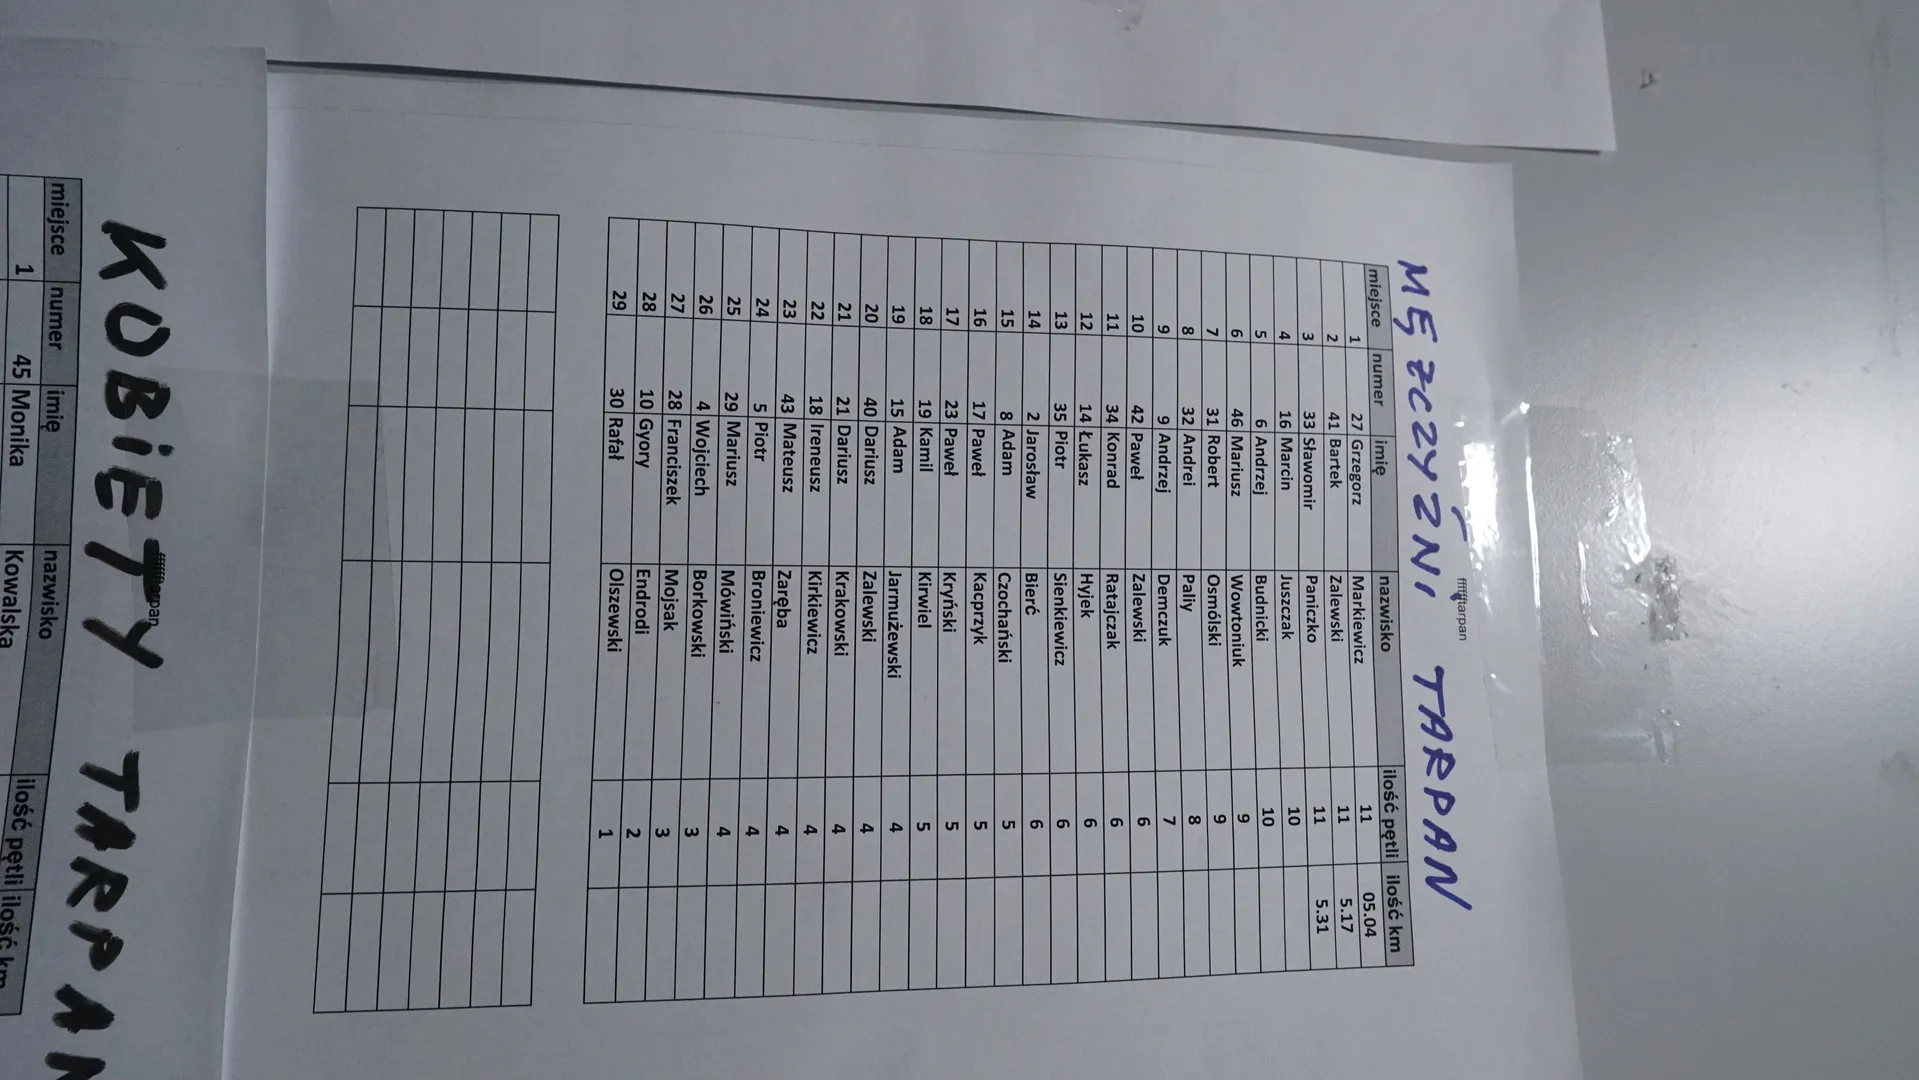 ffffftarpan
MĘŻCZYŹNI TARPAN
miejsce numer imię nazwisko ilość pętli ilość km
1 27 Grzegorz Markiewicz 11 05.04
2 41 Bartek Zalewski 11 5.17
3 33 Sławomir Paniczko 11 5.31
4 16 Marcin Juszczak 10
5 6 Andrzej Budnicki 10
6 46 Mariusz Wowtoniuk 9
7 31 Robert Osmólski 9
8 32 Andrei Paliy 8
9 9 Andrzej Demczuk 7
10 42 Paweł Zalewski 6
11 34 Konrad Ratajczak 6
12 14 Łukasz Hyjek 6
13 35 Piotr Sienkiewicz 6
14 2 Jarosław Bierć 6
15 8 Adam Czochański 5
16 17 Paweł Kacprzyk 5
17 23 Paweł Kryński 5
18 19 Kamil Kirwiel 5
19 15 Adam Jarmużewski 4
20 40 Dariusz Zalewski 4
21 21 Dariusz Krakowski 4
22 18 Ireneusz Kirkiewicz 4
23 43 Mateusz Zaręba 4
24 5 Piotr Broniewicz 4
25 29 Mariusz Mówiński 4
26 4 Wojciech Borkowski 3
27 28 Franciszek Mojsak 3
28 10 Gyory Endrodi 2
29 30 Rafał Olszewski 1
KOBIETY TARPAN
miejsce numer imię nazwisko ilość pętli ilość km
1 45 Monika Kowalska